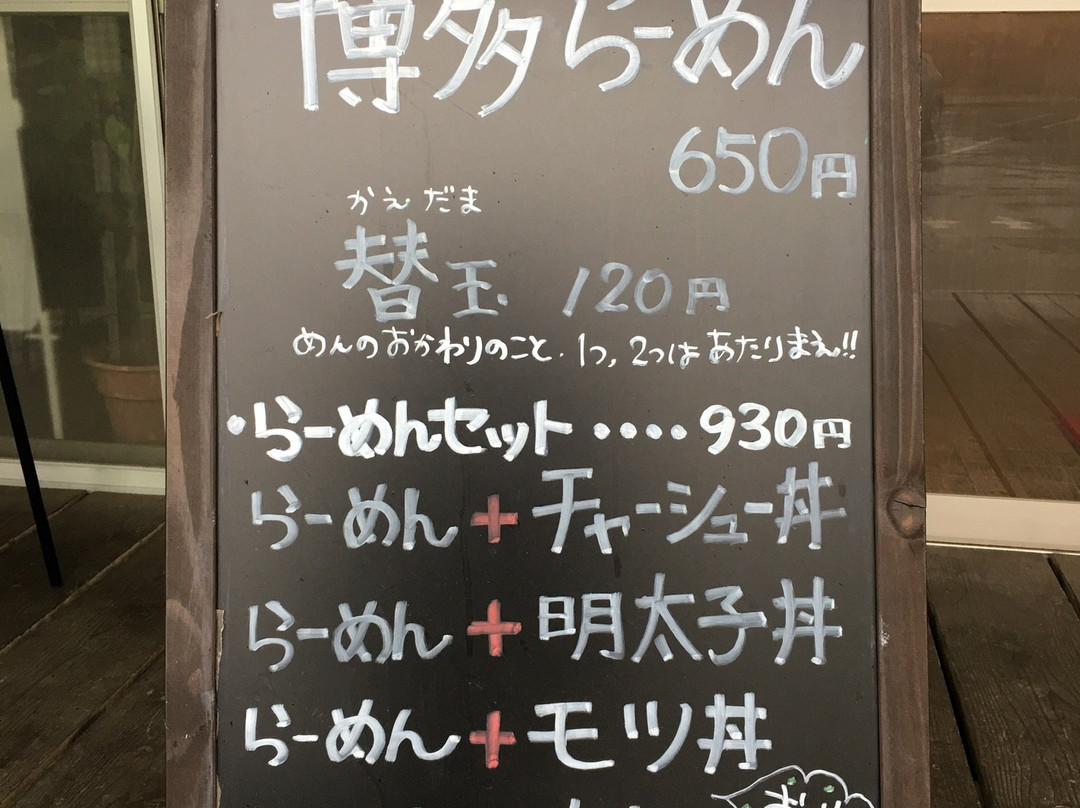 博多らーめん
650円
かえだま
替玉 120円
めんのおかわりのこと。1つ,2つはあたりまえ!!
・らーめんセット‥‥930円
らーめん+チャーシュー丼
らーめん+明太子丼
らーめん+モツ丼